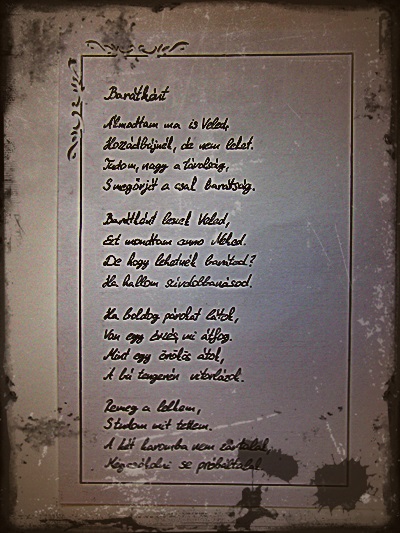 Barátként
Álmodtam ma is Veled,
Hozzádbújnék, de nem lehet.
Tudom, nagy a távolság,
S megőrjít a csak barátság.
Barátként leszek Veled,
Ezt mondtam anno Néked.
De hogy lehetnék barátod?
Ha hallom szívdobbanásod.
Ha boldog párokat látok,
Van egy érzés, mi átfog.
Mint egy örökös átok,
A bú tengerén vitorlázok.
Remeg a lelkem,
S tudom mit tettem.
A két karomba nem zártalak,
Megcsókolni se próbáltalak.